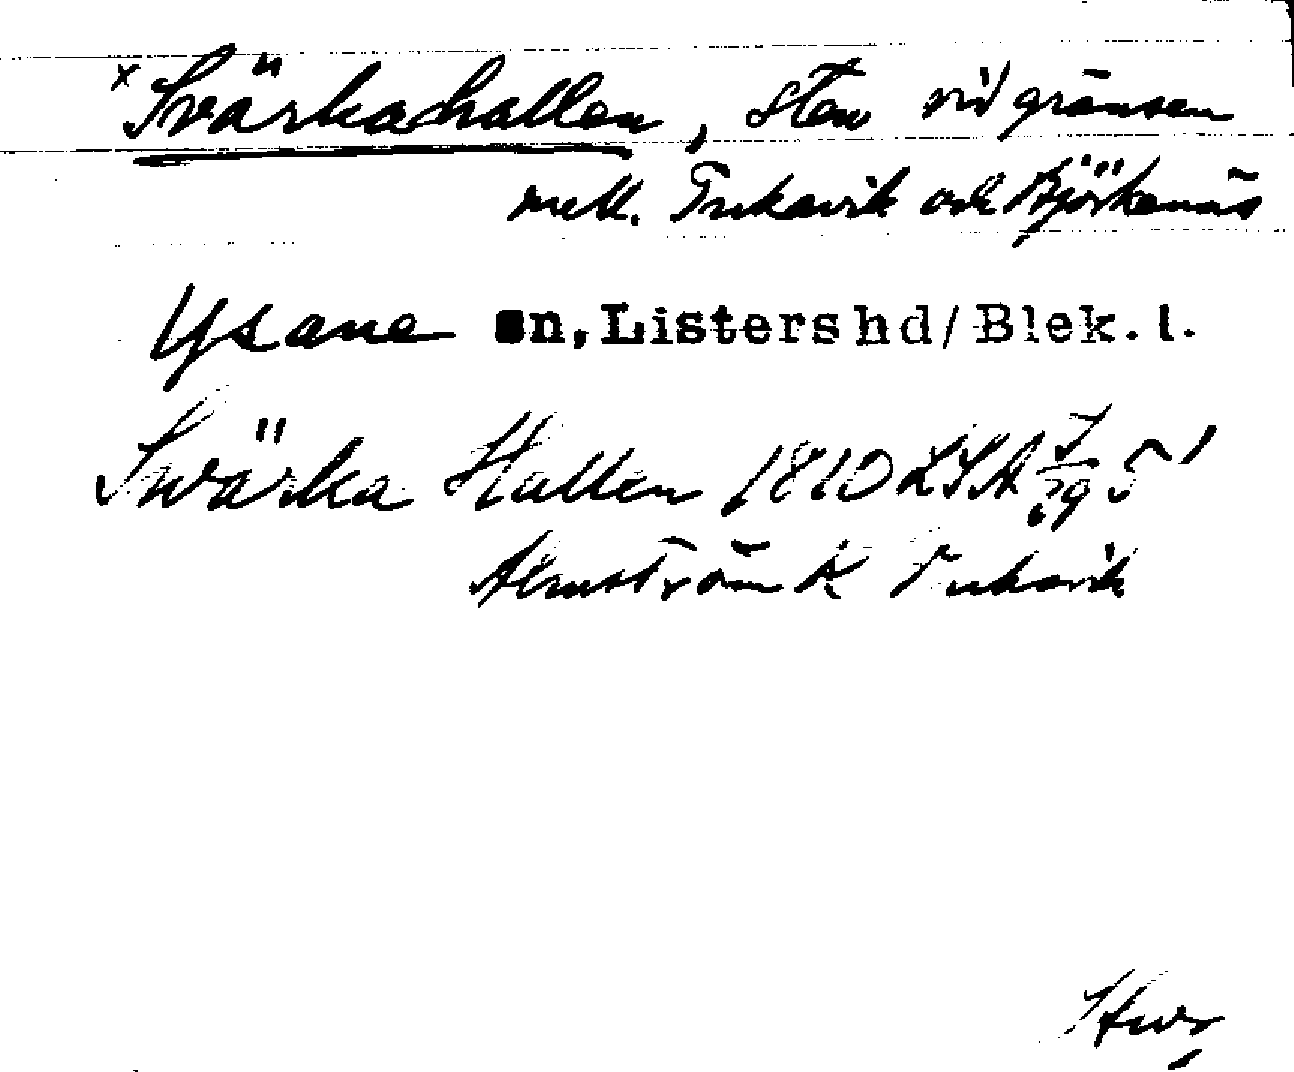 x Svärkahallen, sten vid gränsen
mell. Pukavik och Björkenäs
Ysane sn, Listers hd/Blek. l.
Swärka Hallen 1810 LSA
Almström K Pukavik